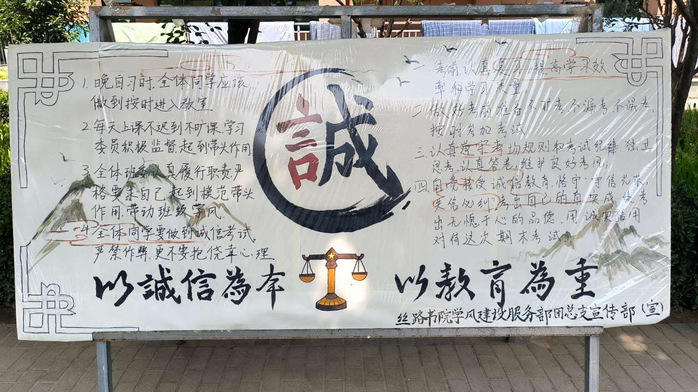 1. 晚自习时,全体同学应该
做到按时进入教室
2 每天上课不迟到不旷课,学习
委员积极监督起到带头作用
3 全体班委认真履行职责,严
格要求自己起到模范带头
作用,带动班级学风
4. 全体同学要做到诚信考试
严禁作弊,更不要抱侥幸心理
誠
一 考前认真复习,提高学习效
率和学习质量
二 做好考前准备不旷考不漏考,
按时参加考试
三 认真遵守考场规则和考试纪律,独立
思考,认真答卷,维护良好考风
四 自觉接受诚信教育,恪守
出无愧于心的品德,用诚实信用
对待这次期末考试
以誠信為本
以教育為重
丝路书院学风建设服务部团总支宣传部(宣)